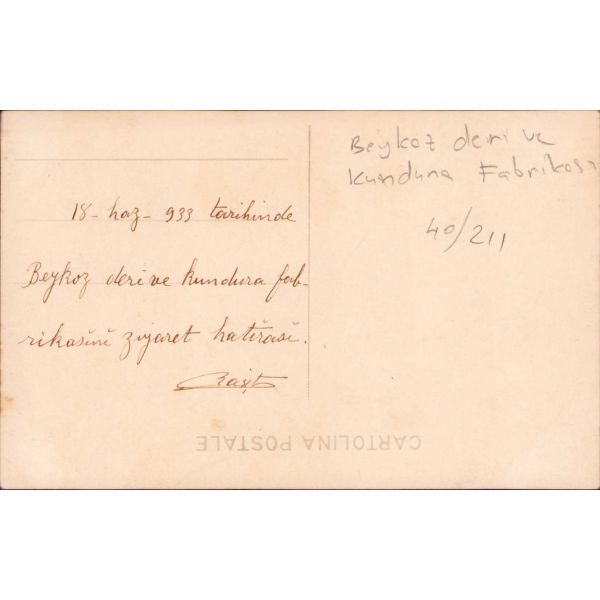 18 - haz - 933 tarihinde
Beykoz deri ve kundura fab-
rikasini ziyaret hatirasi.
Beykoz deri ve
kundura Fabrikası
40/211
CARTOLINA POSTALE